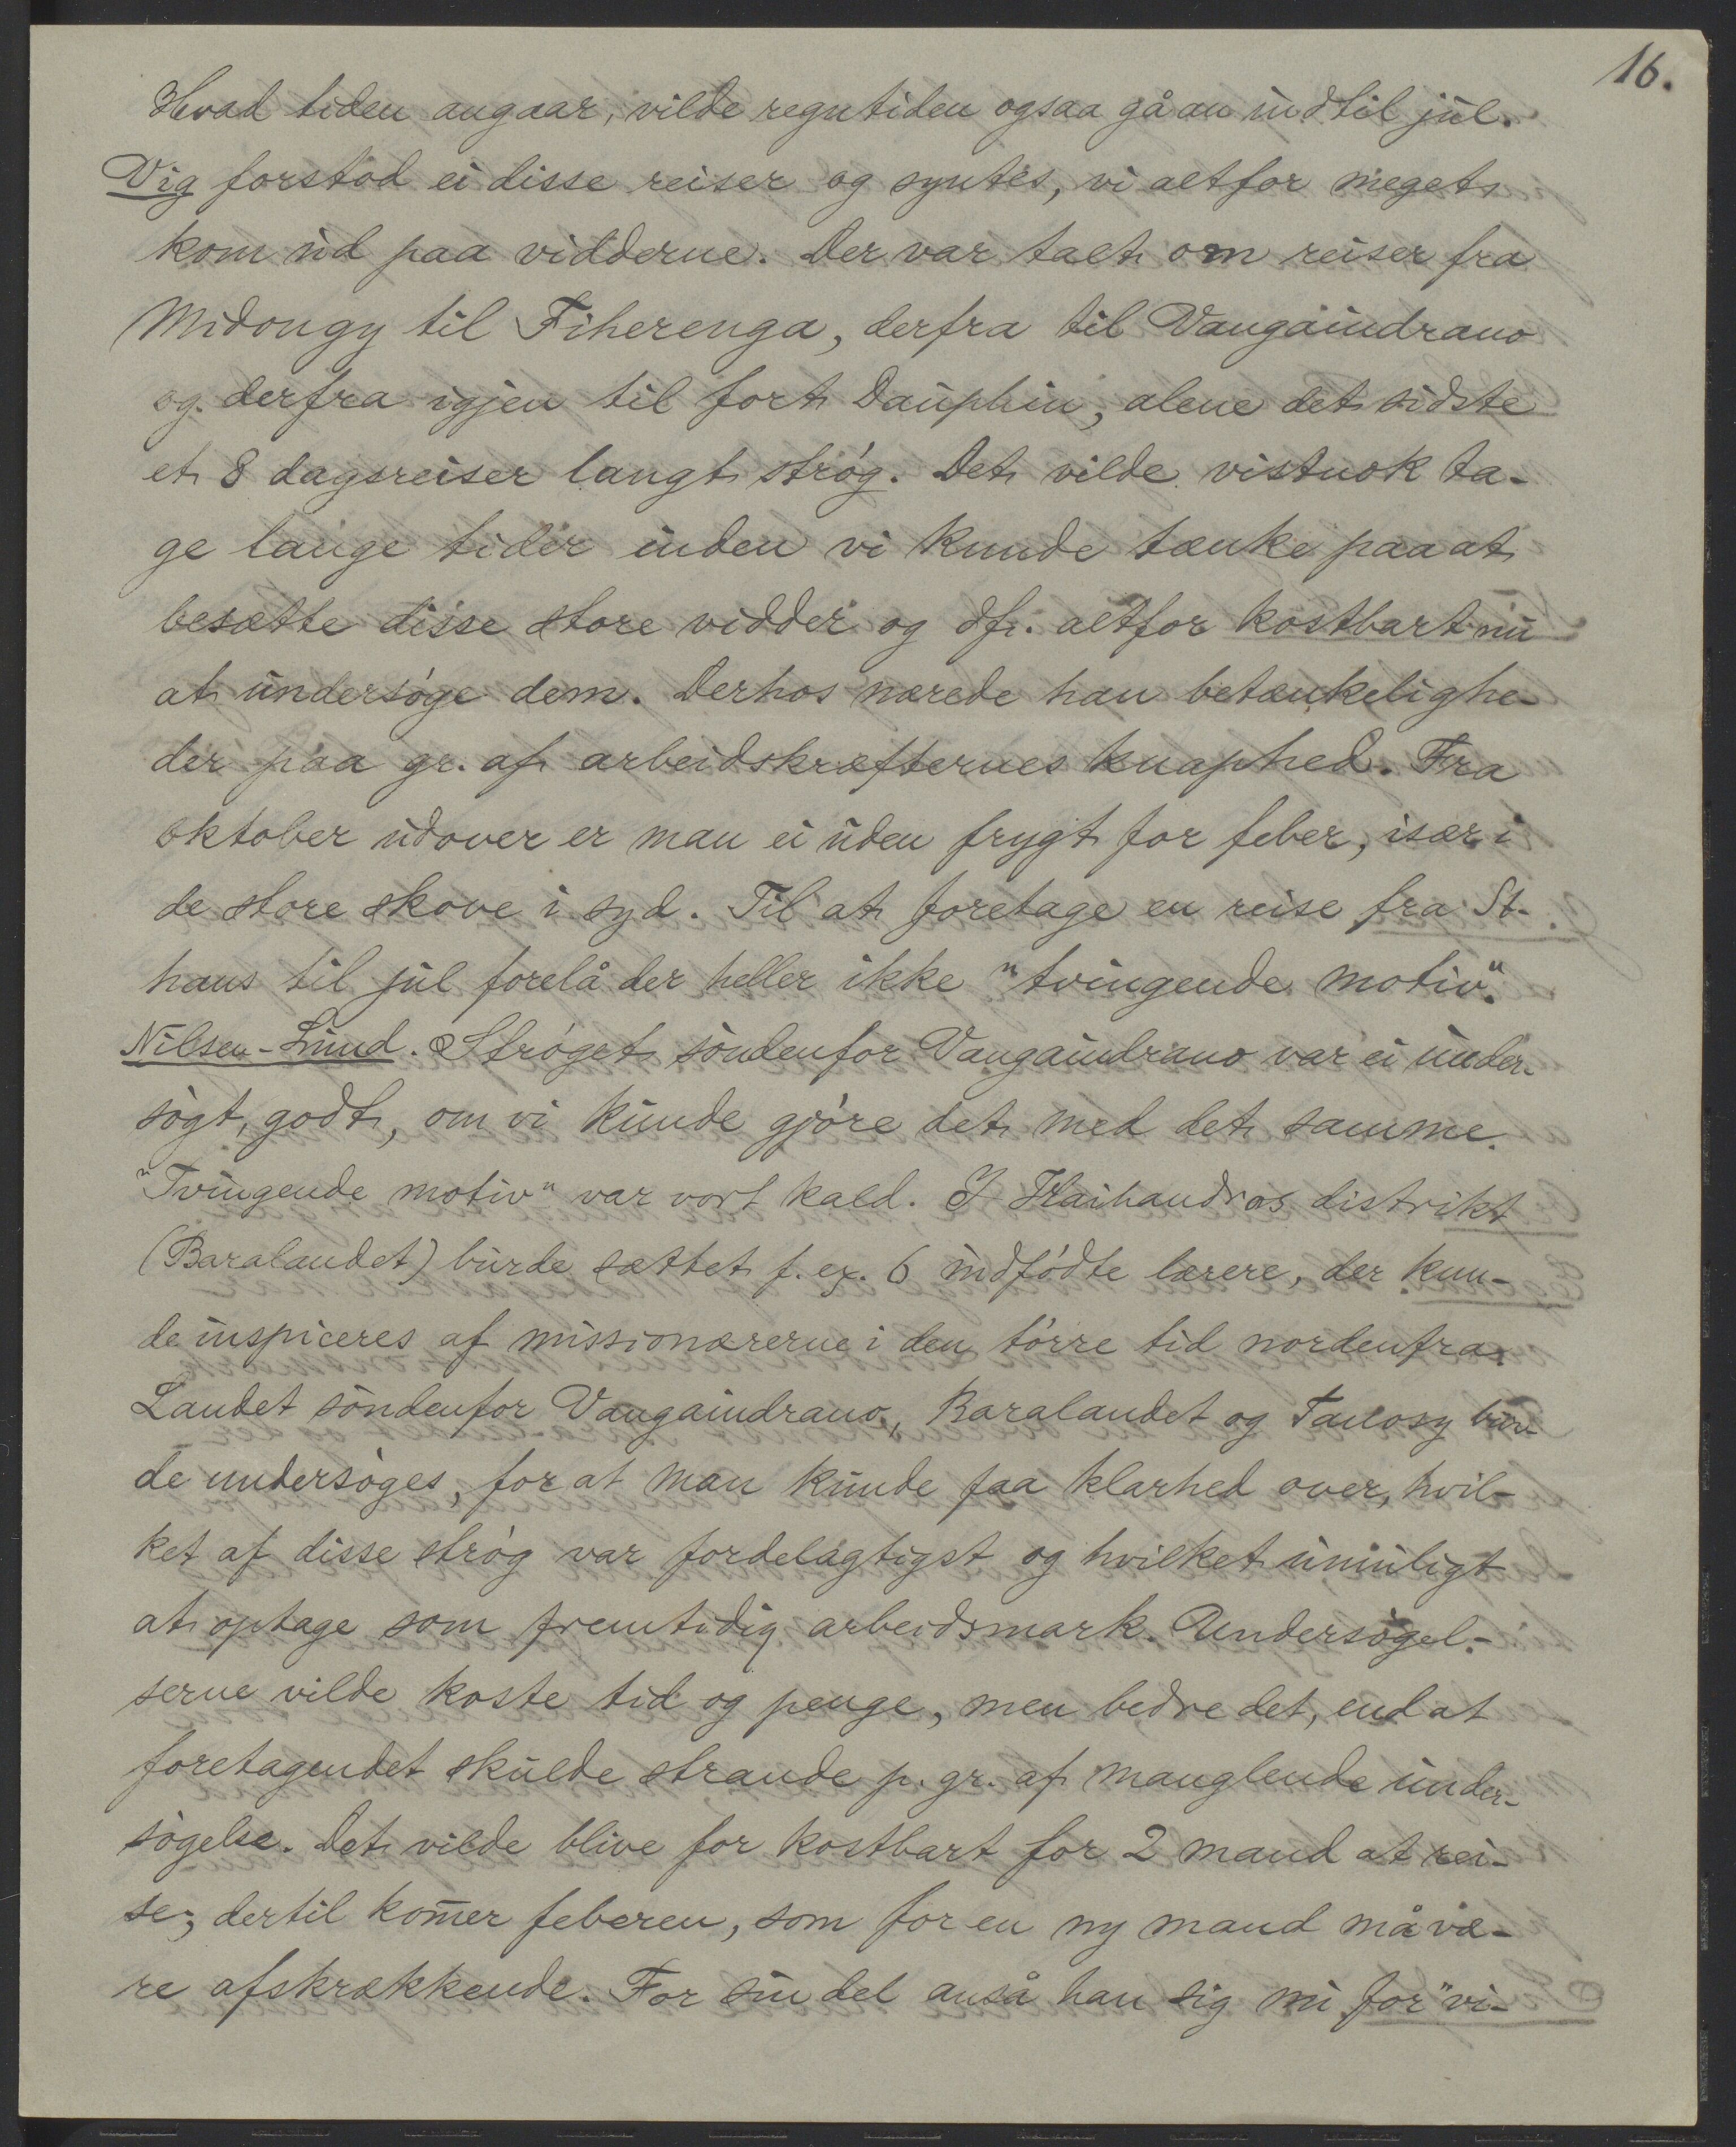 16.
Hvad tiden angaar, vilde regntiden ogsaa gå an indtil jul.
Vig forstod ei disse reiser og syntes, vi altfor meget
kom ud paa vidderne. Der var talt om reiser fra
Midongy til Fiherenga, derfra til Vangaindrano
og derfra igjen til fort Dauphin, alene det sidste
et 8 dagsreiser langt strøg. Det vilde vistnok ta-
ge lange tider inden vi kunde tænke paa at
besætte disse store vidder og dfr. altfor kostbart nu
at undersøge dem. Derhos nærede han betænkelighe-
der paa gr. af arbeidskræfternes knaphed. Fra
oktober udover er man ei uden frygt for feber, især i
de store skove i syd. Til at foretage en reise fra St.
hans til jul forelå der heller ikke "tvingende motiv".
Nilsen-Lund. Strøget søndenfor Vangaindrano var ei under-
søgt, godt, om vi kunde gjøre det med det samme.
"Tvingende motiv" var vort kald. I Itaihandros distrikt
(Baralandet) burde sættet f. ex. 6 indfødte lærere, der kun-
de inspiceres af missionærerne i den tørre tid nordenfra.
Landet søndenfor Vangaindrano, Baralandet og Tanosy bur-
de undersøges, for at man kunde faa klarhed over, hvil-
ket af disse strøg var fordelagtigst og hvilket umuligt
at optage som fremtidig arbeidsmark. Undersøgel-
serne vilde koste tid og penge, men bedre det, end at
foretagendet skulde strande p. gr. af manglende under-
søgelse. Det vilde blive for kostbart for 2 mand at rei-
se; dertil kom̅er feberen, som for en ny mand må væ-
re afskrækkende. For sin del anså han sig nu for "vi-